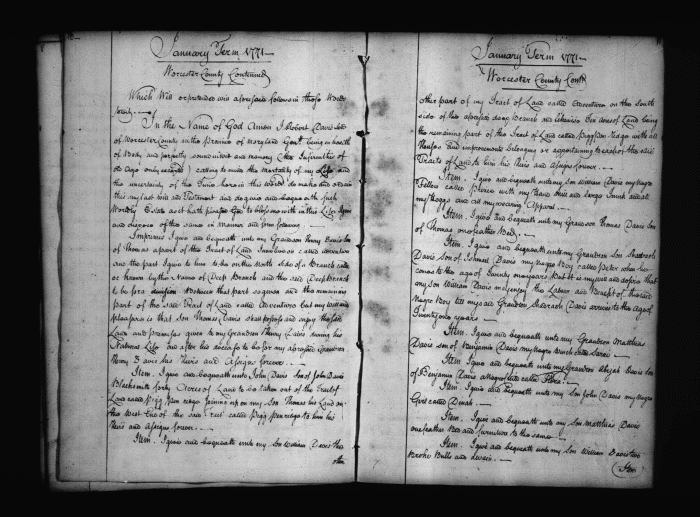 January Term 1771
Worcester County Continued
Which Will or pretended will aforesaid follows in these Words
In the Name of God Amen I Robert Davis Senr
of Worcester County in the Province of Maryland Gent. being in health
of Body and perfectly sound in mind and memory (the Infirmities of
old Age only excepted) calling to mind the Mortality of my Life and
the uncertainty of the Time here in this World do make and ordain
this my last Will and Testament and dispose and bequeath such
Worldly Estate as it hath pleased God to bless me with in this Life I give
and dispose of the same in Manner and form following
Imprimis I give and bequeath unto my Grandson Henry Davis son
of Thomas a part of the Tract of Land called Adventure
and the part I give to him to be on the North Side of a Branch called
or known by the Name of Deep Branch and the said Deep Branch
to be for a division Between that part so given and the remaining
part of the said Tract of Land called Adventure but my will and
pleasure is that Son Thomas Davis shall possess and enjoy the said
Land and premises given to my Grandson Henry Davis during his
Natural Life and after his decease to be for my aforesaid Grandson
Henry Davis his Heirs and Assigns forever
Item. I give and bequeath unto John Davis Son of John Davis
Blacksmith forty Acres of Land to be taken out of the Tract of
Land called joining on my Son Thomas his Land on
the West End of the said called to him his
Heirs and Assigns forever
Item. I give and bequeath unto my Son William Davis the
other
January Term 1771
Worcester County Cont.
other part of my Tract of Land called Adventure on the South
side of the aforesaid deep Branch and likewise Ten Acres of Land being
the remaining part of the Tract of Land called Ridge with all
Houses and improvements belonging or appertaining to each of the said
Tracts of Land to him his Heirs and Assigns forever
Item. I give and bequeath unto my Son William Davis my Negro
Fellow called with my Hand Mill and Large Trunk and all
my Hoggs and all my wearing Apparel
Item. I give and bequeath unto my Grandson Thomas Davis Son
of Thomas one feather Bed
Item. I give and bequeath unto my Grandson Shadrach
Davis Son of Ishmael Davis my Negro Boy called Peter when he
comes to the age of Twenty one years But it is my will and desire that
my Son William Davis may enjoy the Labour and Benefit of the said
Negro Boy till my said Grandson Shadrach Davis arrives to the Age of
Twenty one years
Item. I give and bequeath unto my Grandson Matthias
Davis son of Benjamin Davis my Negro Wench called Sarai
Item I give and bequeath unto my Grandson Abijah Davis Son
of Benjamin Davis a Negro called Flora
Item. I give and bequeath unto my Son John Davis my Negro
Girl called Dinah
Item. I give and bequeath unto my Son Matthias Davis
one feather Bed and furniture to the same
Item. I give and bequeath unto my Son William Davis two
Broke Bulls and
(Item